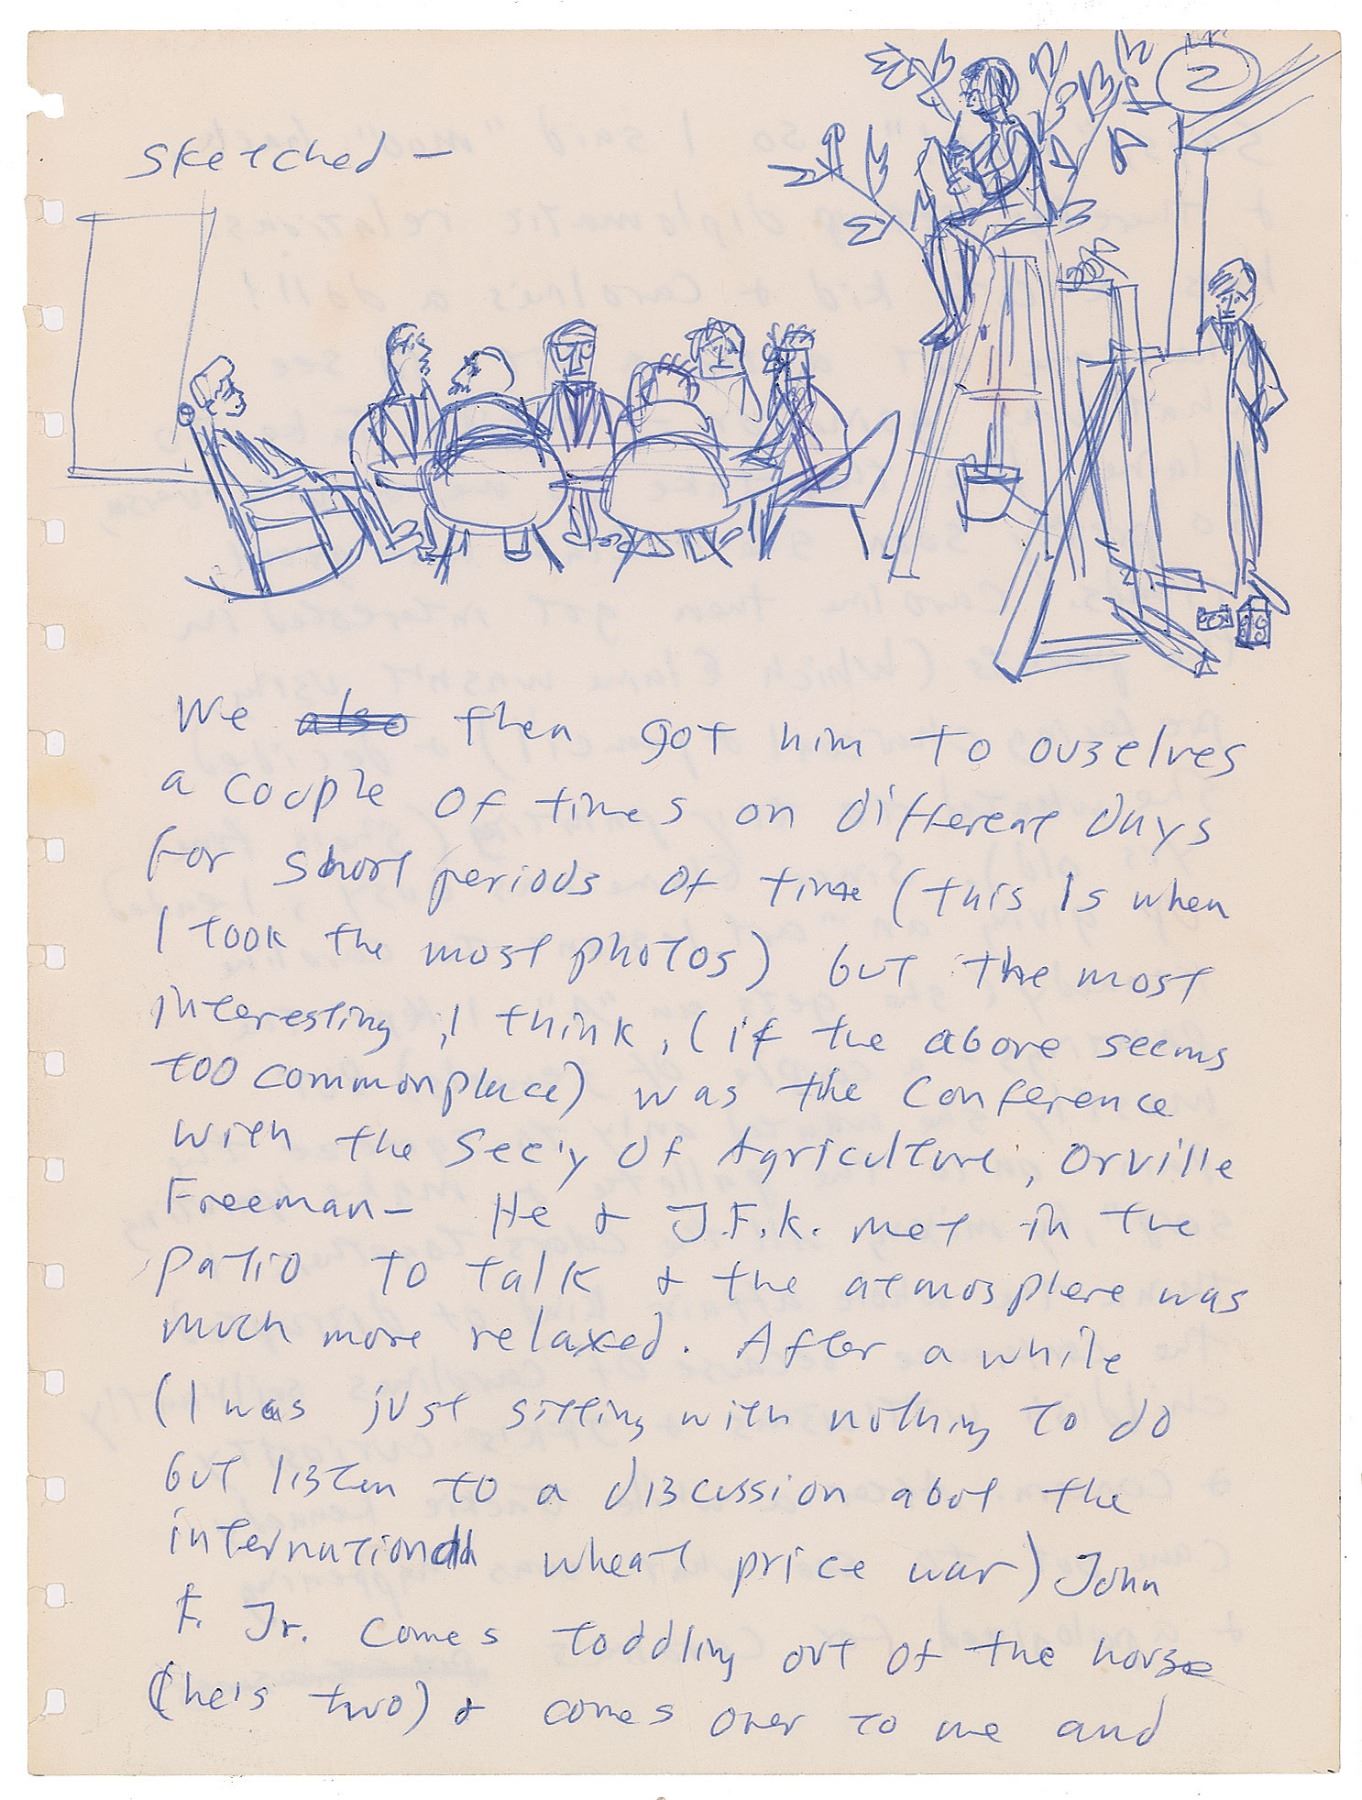 2
Sketched —
We also then got him to ourselves
a couple of times on different days
for short periods of time (this is when
I took the most photos) but the most
interesting, I think, (if the above seems
too commonplace) was the conference
with the Sec'y of Agriculture, Orville
Freeman — He & J.F.K. met in the
patio to talk & the atmosphere was
much more relaxed. After a while
(I was just sitting with nothing to do
but listen to a discussion abot the
international wheat price war) John
F. Jr. comes toddling out of the house
(he's two) & comes over to me and